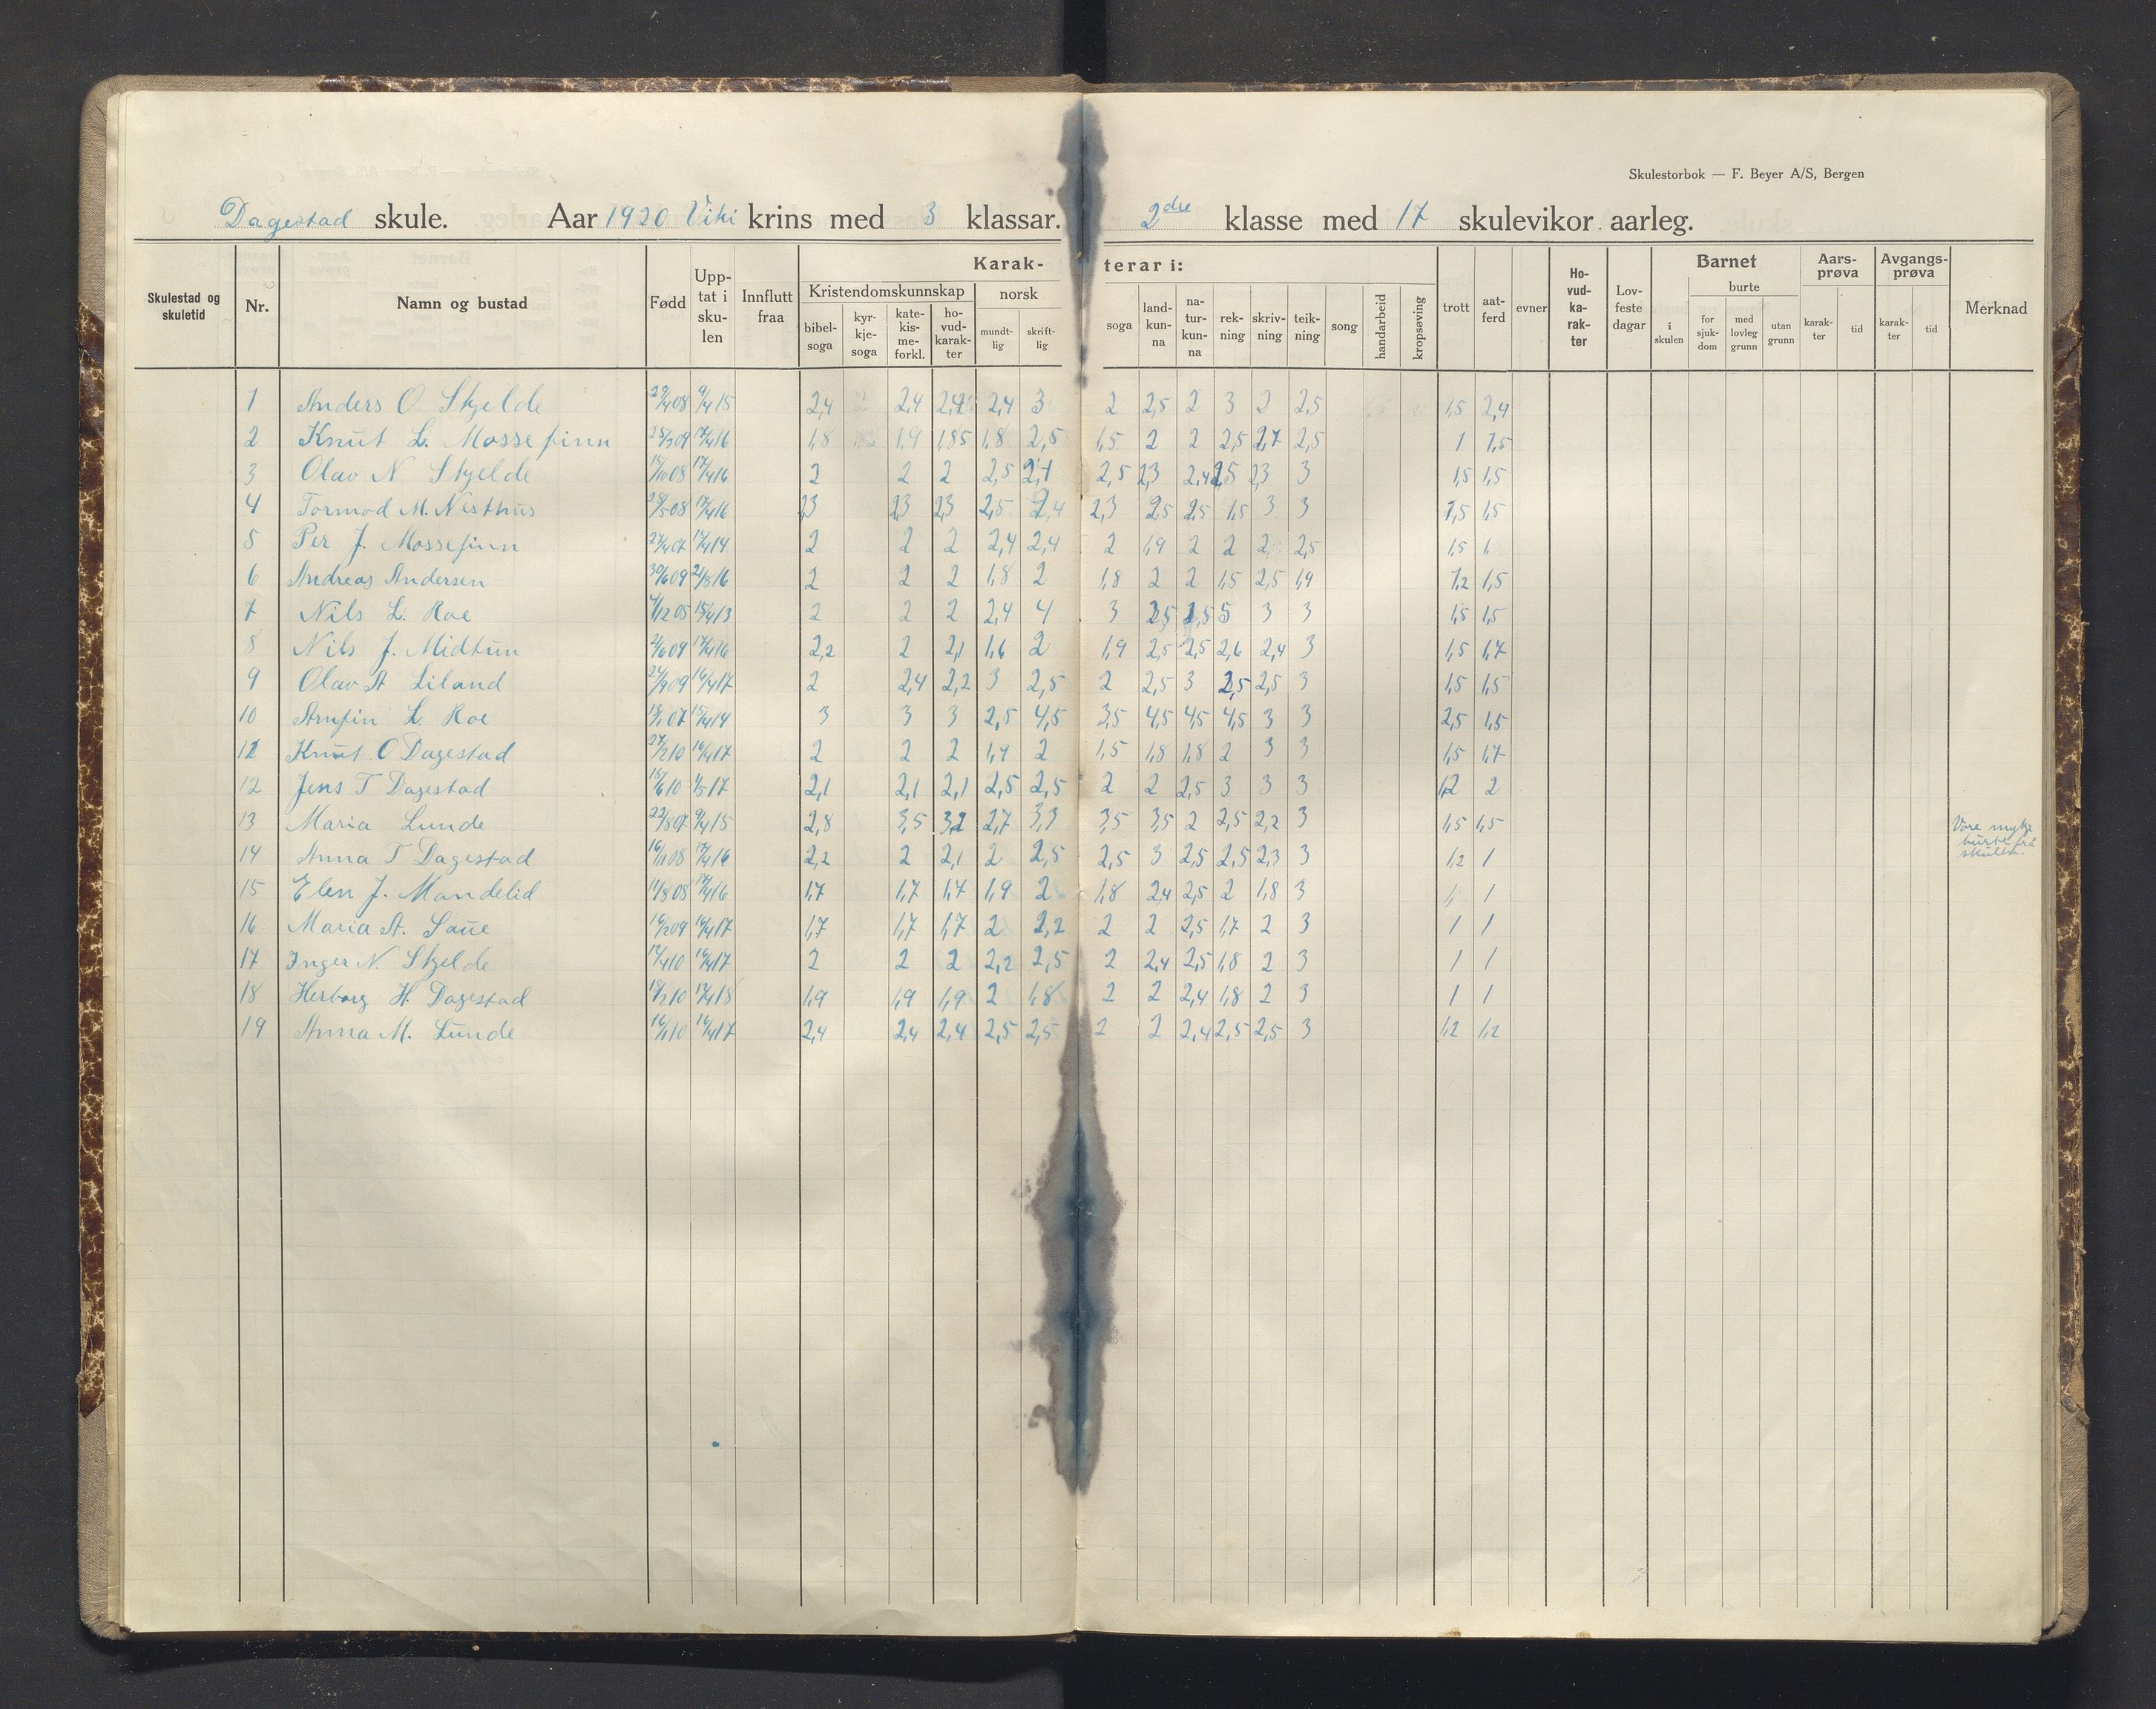 Skulestorbok — F. Beyer A/S, Bergen
Dagestad skule. Aar 1920 Viki krins med 3 klassar. 2dre klasse med 17 skulevikor aarleg.
Skulestad og skuletid
Nr.
Namn og bustad
Fødd
Upp-tat i sku-len
Innflutt fraa
Karak-terar i:
Kristendomskunnskap
bibel-soga
kyr-kje-soga
kate-kis-me-forkl.
ho-vud-karak-ter
norsk
mundt-lig
skrift-lig
soga
land-kun-na
na-tur-kun-na
rek-ning
skriv-ning
teik-ning
song
handarbeid
kropsøving
trott
aat-ferd
evner
Ho-vud-ka-rak-ter
Lov-feste dagar
Barnet
i skulen
burte
for sjuk-dom
med lovleg grunn
utan grunn
Aars-prøva
karak-ter
tid
Avgangs-prøva
karak-ter
tid
Merknad
1 Anders O Skjelde 29/4 08 9/4 15 2,4 2,4 2,4 2,4 3 2 2,5 2 3 2 2,5 1,5 2,4
2 Knut L. Mossefinn 28/3 09 17/4 16 1,8 1,9 1,85 1,8 2,5 1,5 2 2 2,5 2,7 2,5 1 1,5
3 Olav N Skjelde 15/10 08 17/4 16 2 2 2 2,5 2,1 2,5 2,3 2,4 2,5 2,3 3 1,5 1,5
4 Tormod M. Nesthus 28/5 08 17/4 16 2,3 2,3 2,3 2,5 2,4 2,3 2,5 2,5 1,5 3 3 1,5 1,5
5 Per J. Mossefinn 27/4 07 14/4 14 2 2 2 2,4 2,4 2 1,9 2 2 2 2,5 1,5 1
6 Andreas Andersen 30/6 09 21/8 16 2 2 2 1,8 2 1,8 2 2 1,5 2,5 1,9 1,2 1,5
7 Nils L. Roe 4/12 05 15/4 13 2 2 2 2,4 4 3 3,5 2,5 5 3 3 1,5 1,5
8 Nils J. Midtun 2/6 09 17/4 16 2,2 2 2,1 1,6 2 1,9 2,5 2,5 2,6 2,4 3 1,5 1,7
9 Olav A Liland 24/9 09 16/4 17 2 2,4 2,2 3 2,5 2 2,5 3 2,5 2,5 3 1,5 1,5
10 Arnfin L. Roe 18/1 07 15/4 14 3 3 3 2,5 4,5 3,5 4,5 4,5 4,5 3 3 2,5 1,5
12 Knut O Dagestad 27/2 10 16/4 17 2 2 2 1,9 2 1,5 1,8 1,8 2 3 3 1,5 1,7
12 Jens T Dagestad 15/6 10 1/5 17 2,1 2,1 2,1 2,5 2,5 2 2 2,5 3 3 3 1,2 2
13 Maria Lunde 22/8 07 9/4 15 2,8 3,5 3,2 2,7 3,3 3,5 3,5 2 2,5 2,2 3 1,5 1,5 Vore mykje burte frå skulen.
14 Anna T Dagestad 16/11 08 17/4 16 2,2 2 2,1 2 2,5 2,5 3 2,5 2,5 2,3 3 1,2 1
15 Elen J. Mandelid 11/8 08 17/4 16 1,7 1,7 1,7 1,9 2 1,8 2,4 2,5 2 1,8 3 1
16 Maria A. Saue 16/2 09 16/4 17 1,7 1,7 1,7 2 2,2 2 2 2,5 1,7 2 3 1 1
17 Inger N. Skjelde 14/4 10 16/4 17 2 2 2 2,2 2,5 2 2,4 2,5 1,8 2 3 1 1
18 Herborg H. Dagestad 18/2 10 17/4 18 1,9 1,9 1,9 2 1,8 2 2 2,4 1,8 2 3 1 1
19 Anna M. Lunde 16/1 10 16/4 17 2,4 2,4 2,4 2,5 2,5 2 2 2,4 2,5 2,5 3 1,2 1,2